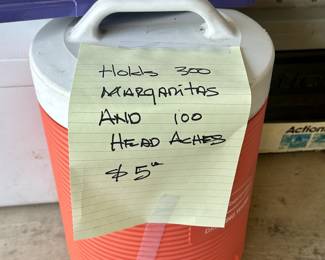 Holds 300
MARGARITAS
AND 100
HEAD ACHES
$5
Action